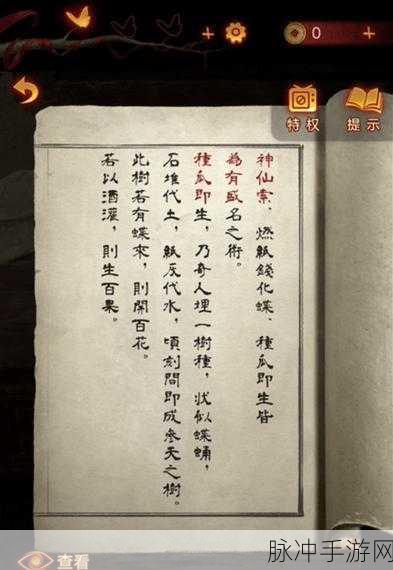 0
特权
提示
神仙索、燃紙錢化蝶、種瓜即生皆
為有盛名之術。
種瓜即生，乃奇人埋一樹種，狀似蝶蛹，
石堆代土，紙灰代水，頃刻間即成參天之樹。
此樹若有蝶來，則開百花。
若以酒灌，則生百果。
查看
脉冲手游网